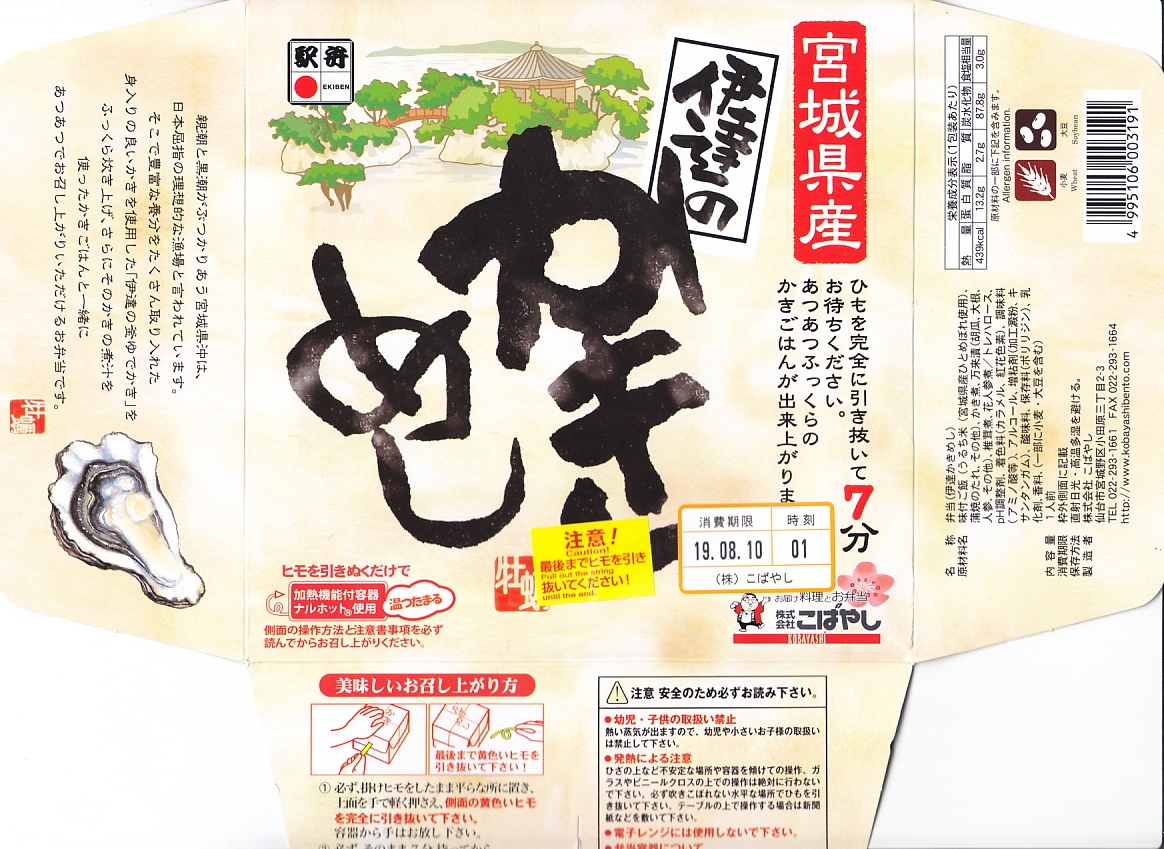 駅弁
EKIBEN
宮城県産
伊達の
かきめし
牡蠣
ひもを完全に引き抜いて7分
お待ちください。
あつあつふっくらの
かきごはんが出来上がりま
注意!
Caution!
最後までヒモを引き
Pull out the string
抜いてください!
until the end.
消費期限
時刻
19.08.10
01
(株)こばやし
お届け料理とお弁当
株式会社こばやし
KOBAYASHI
ヒモを引きぬくだけで
加熱機能付容器
ナルホット®使用
温つたまる
側面の操作方法と注意書事項を必ず
読んでからお召し上がりください。
親潮と黒潮がぶつかりあう宮城県沖は、
日本屈指の理想的な漁場と言われています。
そこで豊富な養分をたくさん取り入れた
身入りの良いかきを使用した「伊達の釜ゆでかき」を
ふっくら炊き上げ、さらにそのかきの煮汁を
使ったかきごはんと一緒に
あつあつでお召し上がりいただけるお弁当です。
牡蠣
栄養成分表示(1包装あたり)
熱量 蛋白質 脂質 炭水化物 食塩相当量
439kcal 13.2g 2.7g 87.8g 3.0g
原材料の一部に下記を含みます。
Allergen information.
小麦
Wheat
大豆
Soybean
4 995106 003191
名称 弁当(伊達かきめし)
原材料名 味付ご飯(うるち米(宮城県産ひとめぼれ使用)、
蒲焼のたれ、その他)、かき煮、万来漬(胡瓜、大根、
人参、その他)、椎茸煮、花人参煮/トレハロース、
pH調整剤、着色料(カラメル、紅花色素)、調味料
(アミノ酸等)、アルコール、増粘剤(加工澱粉、キ
サンタンガム)、酸味料、保存料(ポリリジン)、乳
化剤、香料、(一部に小麦・大豆を含む)
内容量 1人前
消費期限 枠外側面に記載
保存方法 直射日光・高温多湿を避ける。
製造者 株式会社 こばやし
仙台市宮城野区小田原三丁目2-3
TEL 022-293-1661 FAX 022-293-1664
http://www.kobayashibento.com
美味しいお召し上がり方
最後まで黄色いヒモを
引き抜いて下さい!
① 必ず、掛けヒモをしたまま平らな所に置き、
上面を手で軽く押さえ、側面の黄色いヒモ
を完全に引き抜いて下さい。
容器から手はお放し下さい。
注意 安全のため必ずお読み下さい。
●幼児・子供の取扱い禁止
熱い蒸気が出ますので、幼児や小さいお子様の取扱い
は禁止して下さい。
●発熱による注意
ひざの上など不安定な場所や容器を傾けての操作、ガ
ラスやビニールクロスの上での操作は絶対に行わない
で下さい。必ず吹きこぼれない水平な場所でひもを引
き抜いて下さい。テーブルの上で操作する場合は新聞
紙などを敷いて下さい。
●電子レンジには使用しないで下さい。
●弁当容器について